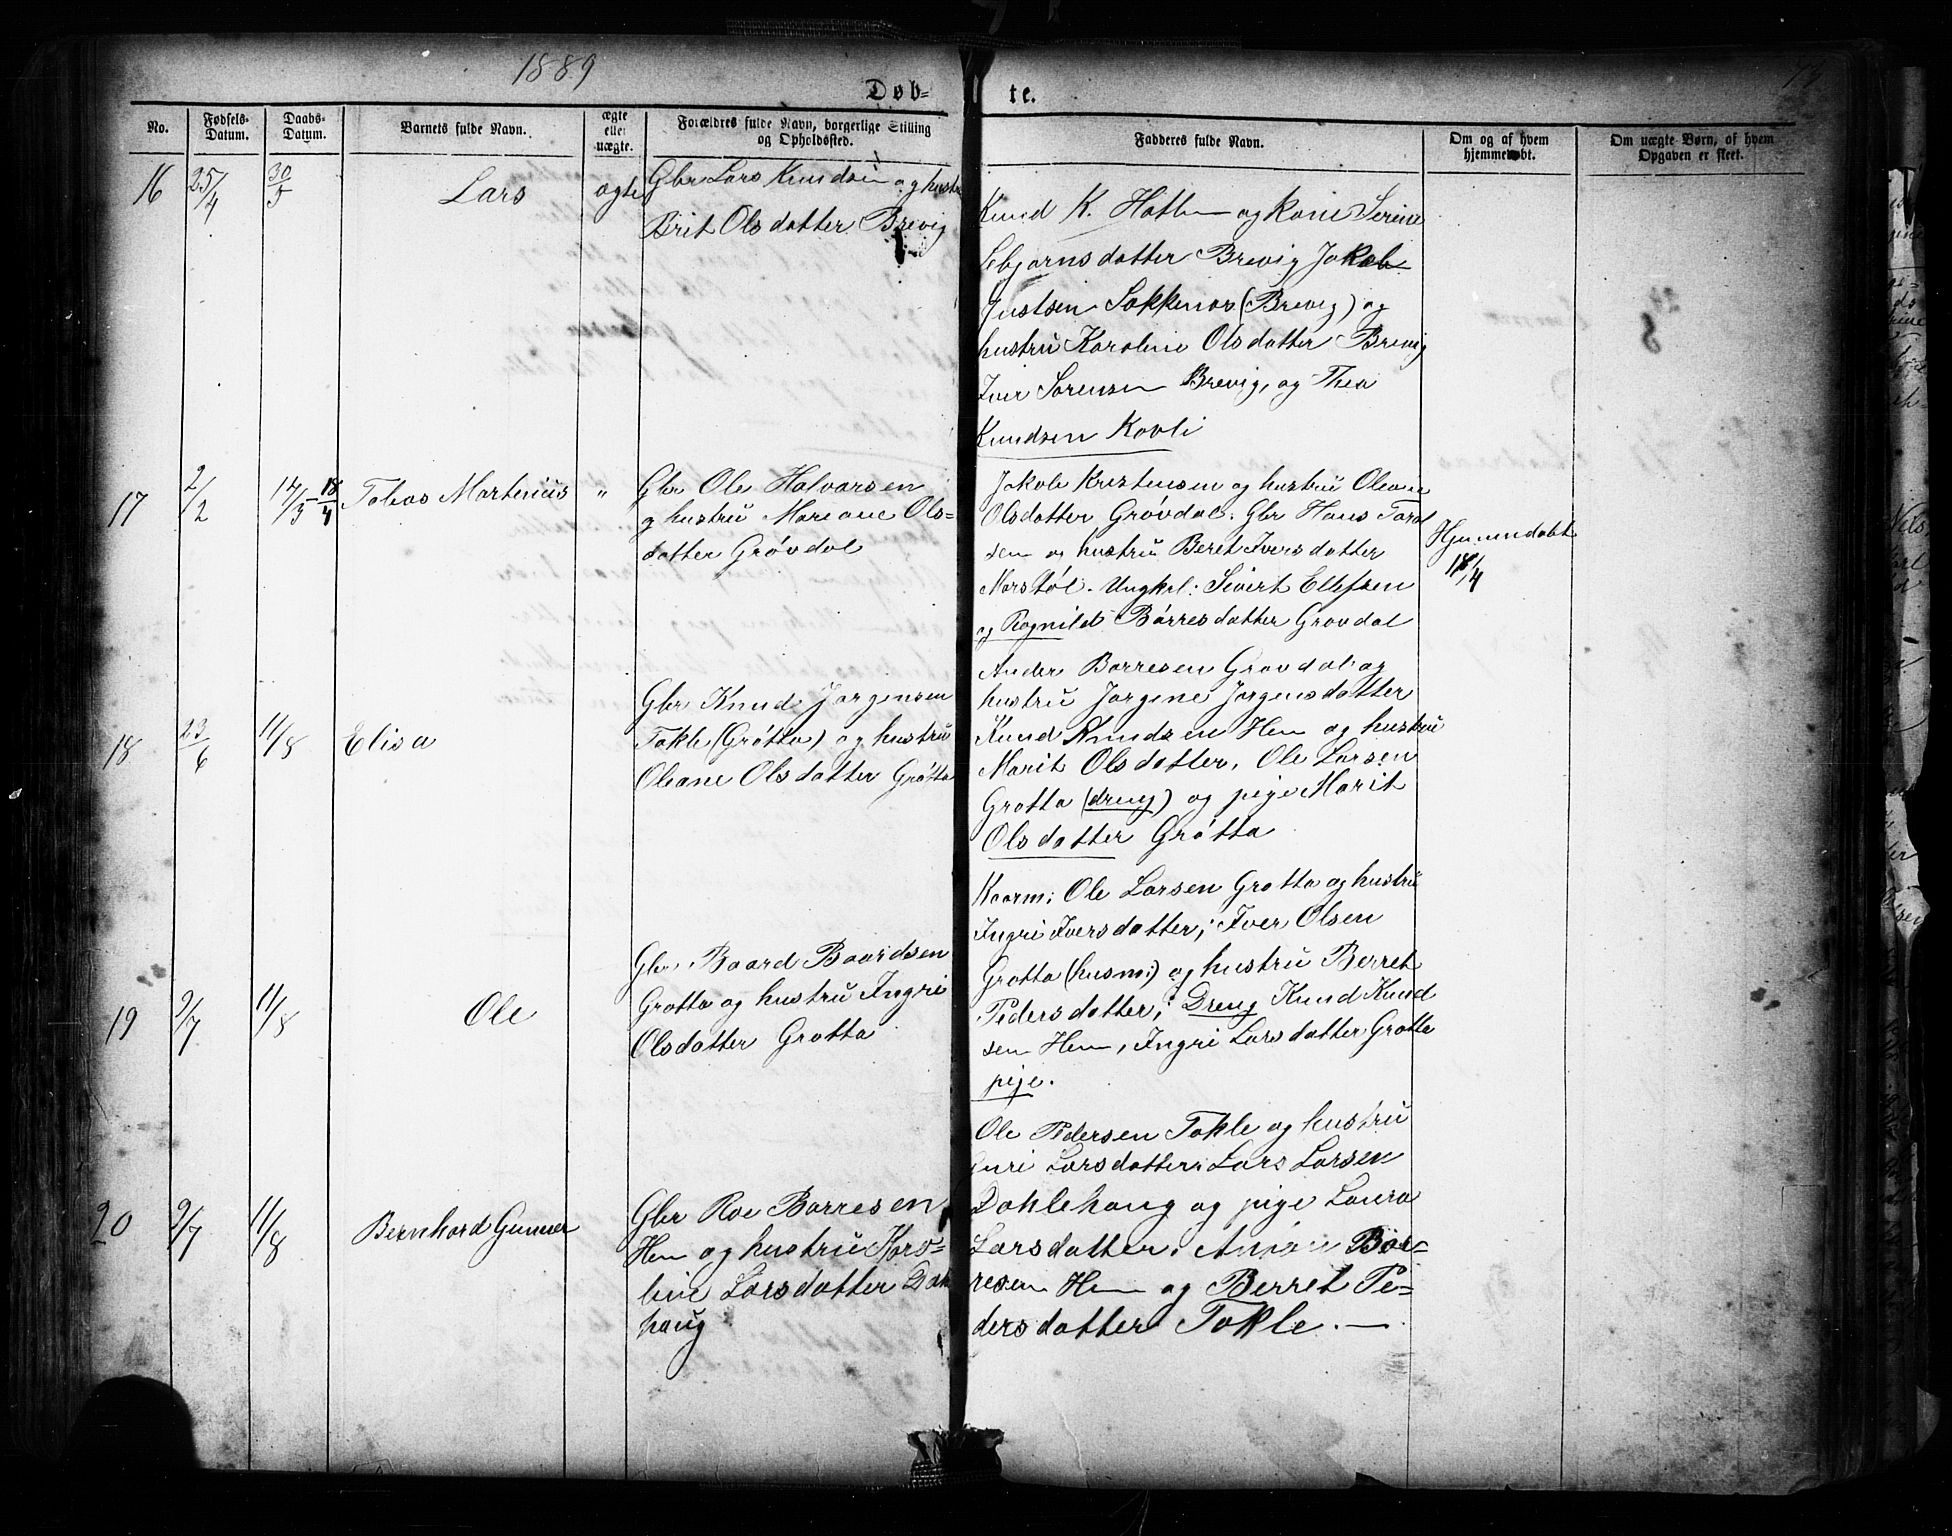 1889
Døb-
te.
73
No.
Fødsels-
Datum.
Daabs-
Datum.
Barnets fulde Navn.
ægte
eller
uægte.
Forældres fulde Navn, borgerlige Stilling
og Opholdssted.
Fadderes fulde Navn.
Om og af hvem
hjemmedøbt.
Om uægte Børn, af hvem
Opgaven er skeet.
16
25/4
30/5
Lars
ægte
Gbr Lars Knudsen og hustru
Brit Olsdatter Brevig
Knud K. Hatle og kone Serine
Sebjørnsdatter Brevig Jakob
Justsen Søkkenes (Brevig) og
hustru Karoline Olsdatter Brevig
Iver Sørensen Brevig, og Thea
Knudsen Kovli
17
2/2
14/5 - 18/4
Tobias Martenius
"
Gbr Ole Halvorsen
og hustru Mariane Ols-
datter Grøvdal
Jakob Kristensen og hustru Oleane
Olsdatter Grøvdal. Gbr Hans Toral
sen og hustru Beret Iversdatter
Morstøl. Ungkrl: Sivert Ellefsen
og Ragnild Børresdatter Grøvdal
Hjemmedøbt
18/4
18
23/6
11/8
Elisa
Gbr Knud Jørgensen
Tokle (Grøtta) og hustru
Oleane Olsdatter Grøtta
Ander Børresen Grøvdal og
hustru Jørgine Jørgensdatter
Knud Knudsen Hem og hustru
Marit Olsdatter, Ole Larsen
Grøtta (dreng) og pige Marit
Olsdatter Grøtta
19
9/7
11/8
Ole
Gbr. Baard Baardsen
Grøtta og hustru Ingri
Olsdatter Grøtta
Kaarm; Ole Larsen Grøtta og hustru
Ingri Iversdatter; Iver Olsen
Grøtta (husm;) og hustru Berret
Pedersdatter; Dreng Knud Knud
sen Hem, Ingri Larsdatter Grøtta
pige.
20
9/7
11/8
Bernhard Gunner
Gbr Roe Børresen
Hem og hustru Karo-
line Larsdatter Dahle
haug
Ole Pedersen Tokle og hustru
Guri Larsdatter, Lars Larsen
Dahlehaug og pige Laura
Larsdatter; Bør-
resen Hem og Berret Pe-
dersdatter Tokle. —